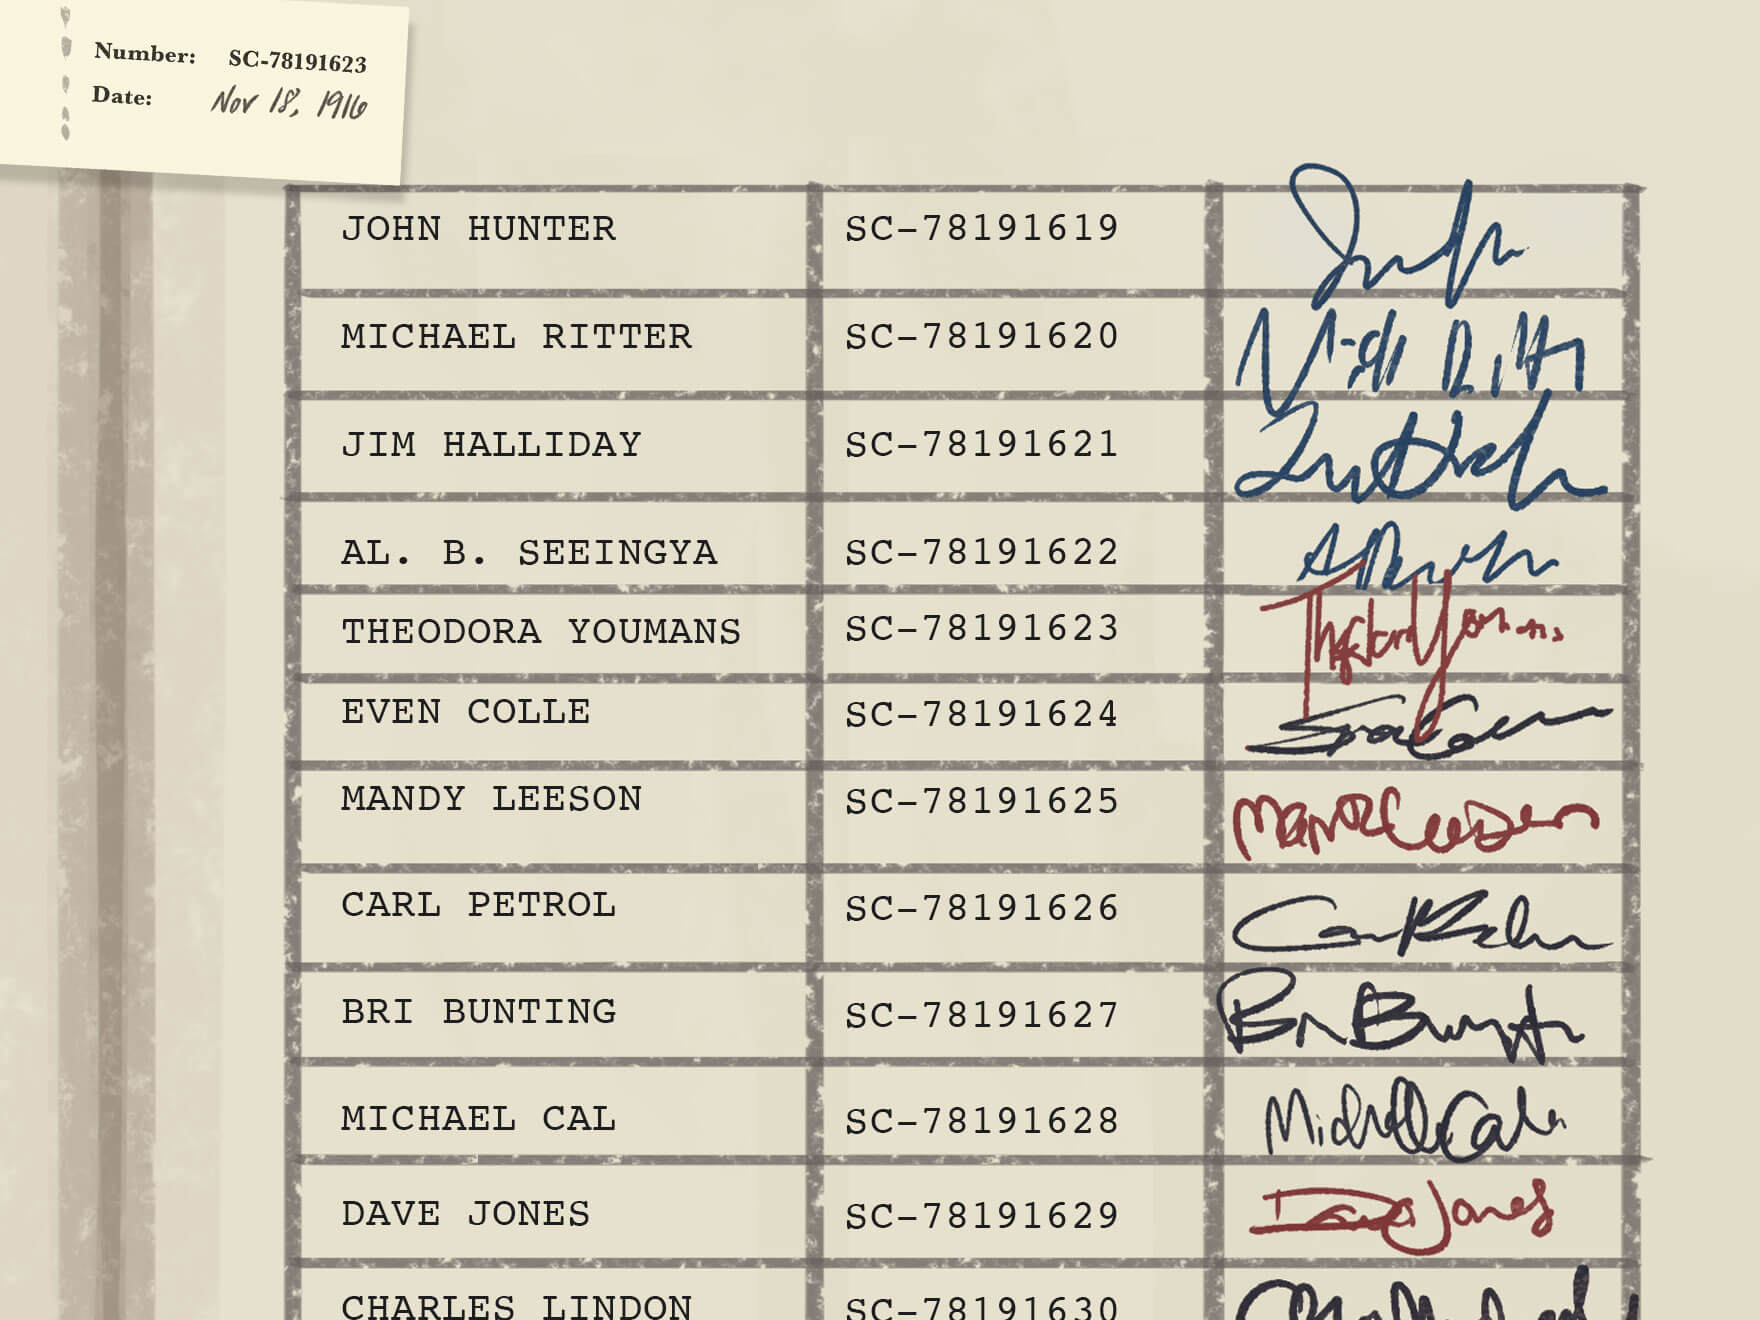 Number: SC-78191623
Date: Nov 18, 1916
JOHN HUNTER SC-78191619
MICHAEL RITTER SC-78191620
JIM HALLIDAY SC-78191621
AL. B. SEEINGYA SC-78191622
THEODORA YOUMANS SC-78191623
EVEN COLLE SC-78191624
MANDY LEESON SC-78191625
CARL PETROL SC-78191626
BRI BUNTING SC-78191627
MICHAEL CAL SC-78191628
DAVE JONES SC-78191629
CHARLES LINDON SC-78191630